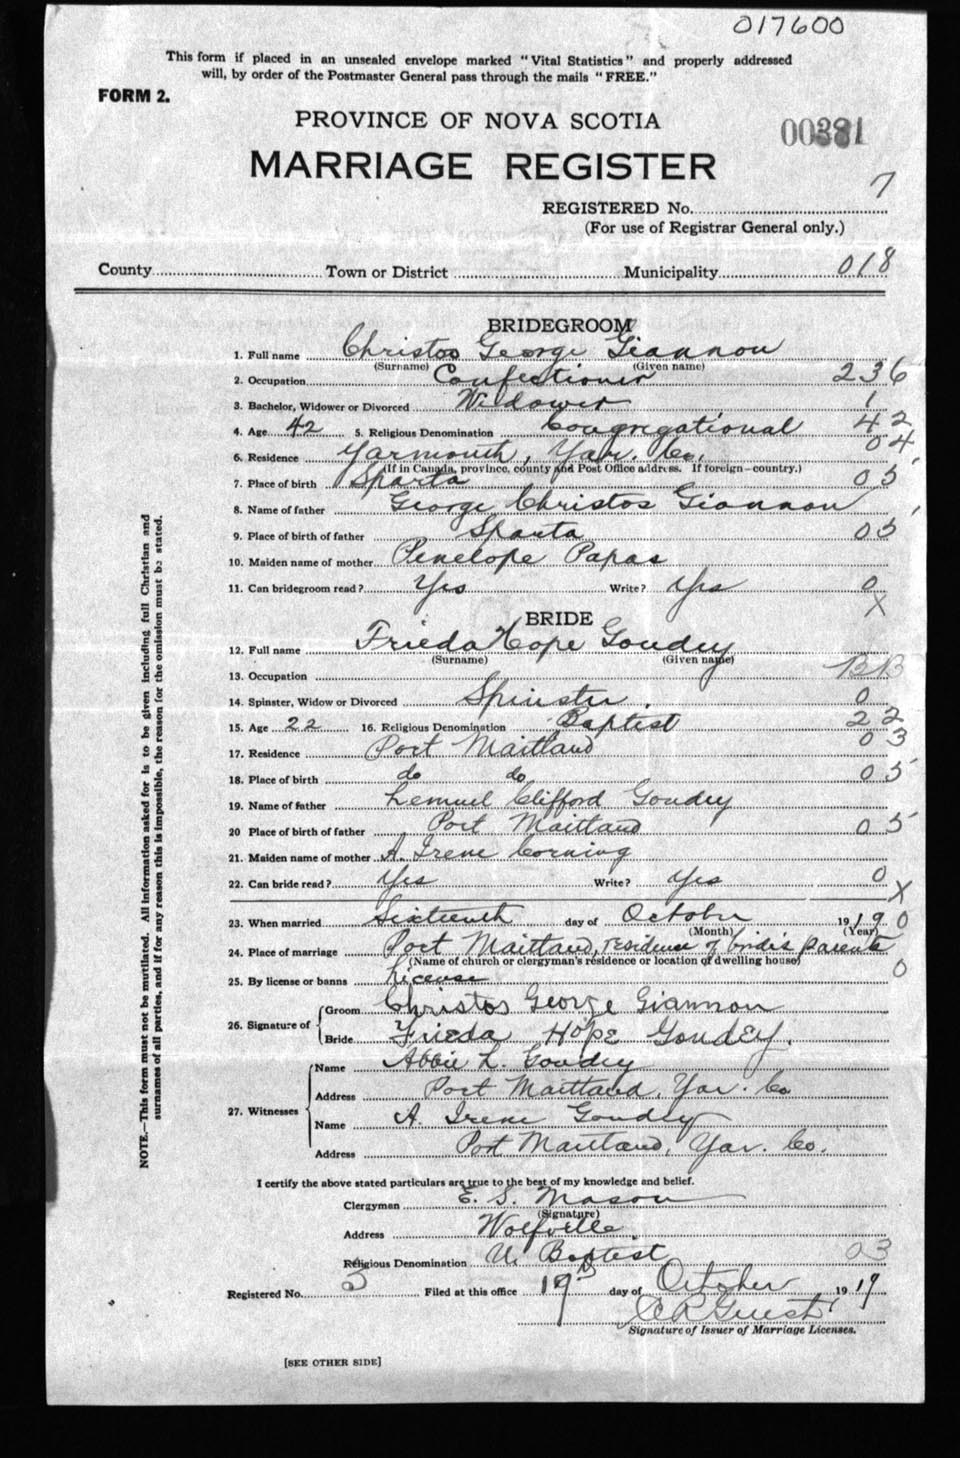 017600
This form if placed in an unsealed envelope marked "Vital Statistics" and properly addressed
will, by order of the Postmaster General pass through the mails "FREE."
FORM 2.
PROVINCE OF NOVA SCOTIA
MARRIAGE REGISTER
7
REGISTERED No.
(For use of Registrar General only.)
County Town or District Municipality 018
BRIDEGROOM
1. Full name Christos George Giannou
(Surname) (Given name)
2. Occupation Confectioner 236
3. Bachelor, Widower or Divorced Widower 1
4. Age 42 5. Religious Denomination Congregational 42
6. Residence Yarmouth, Yar. Co. 04
(If in Canada, province, county and Post Office address. If foreign—country.)
7. Place of birth Sparta 05
8. Name of father George Christos Giannou
9. Place of birth of father Sparta 05
10. Maiden name of mother Penelope Papas
11. Can bridegroom read? Yes Write? Yes 0
X
BRIDE
12. Full name Frieda Hope Goudey
(Surname) (Given name)
13. Occupation BB
14. Spinster, Widow or Divorced Spinster. 0
15. Age 22 16. Religious Denomination Baptist 22
17. Residence Port Maitland 03
18. Place of birth do do 05
19. Name of father Lemuel Clifford Goudey
20 Place of birth of father Port Maitland 05
21. Maiden name of mother A. Irene Corning
22. Can bride read? Yes Write? Yes 0
X
23. When married Sixteenth day of October 1919 0
(Month) (Year)
24. Place of marriage Port Maitland, residence of bride's parents
(Name of church or clergyman's residence or location of dwelling house) 0
25. By license or banns License
26. Signature of Groom Christos George Giannou
Bride Frieda Hope Goudey.
27. Witnesses Name Abbie L. Goudey
Address Port Maitland, Yar. Co
Name A. Irene Goudey
Address Port Maitland, Yar. Co.
I certify the above stated particulars are true to the best of my knowledge and belief.
Clergyman E. S. Mason
(Signature)
Address Wolfville.
Religious Denomination U. Baptist 03
Registered No. 3 Filed at this office 19 day of October 1919
C R Guest
Signature of Issuer of Marriage Licenses.
[SEE OTHER SIDE]
NOTE.—This form must not be mutilated. All information asked for is to be given including full Christian and
surnames of all parties, and if for any reason this is impossible, the reason for the omission must be stated.